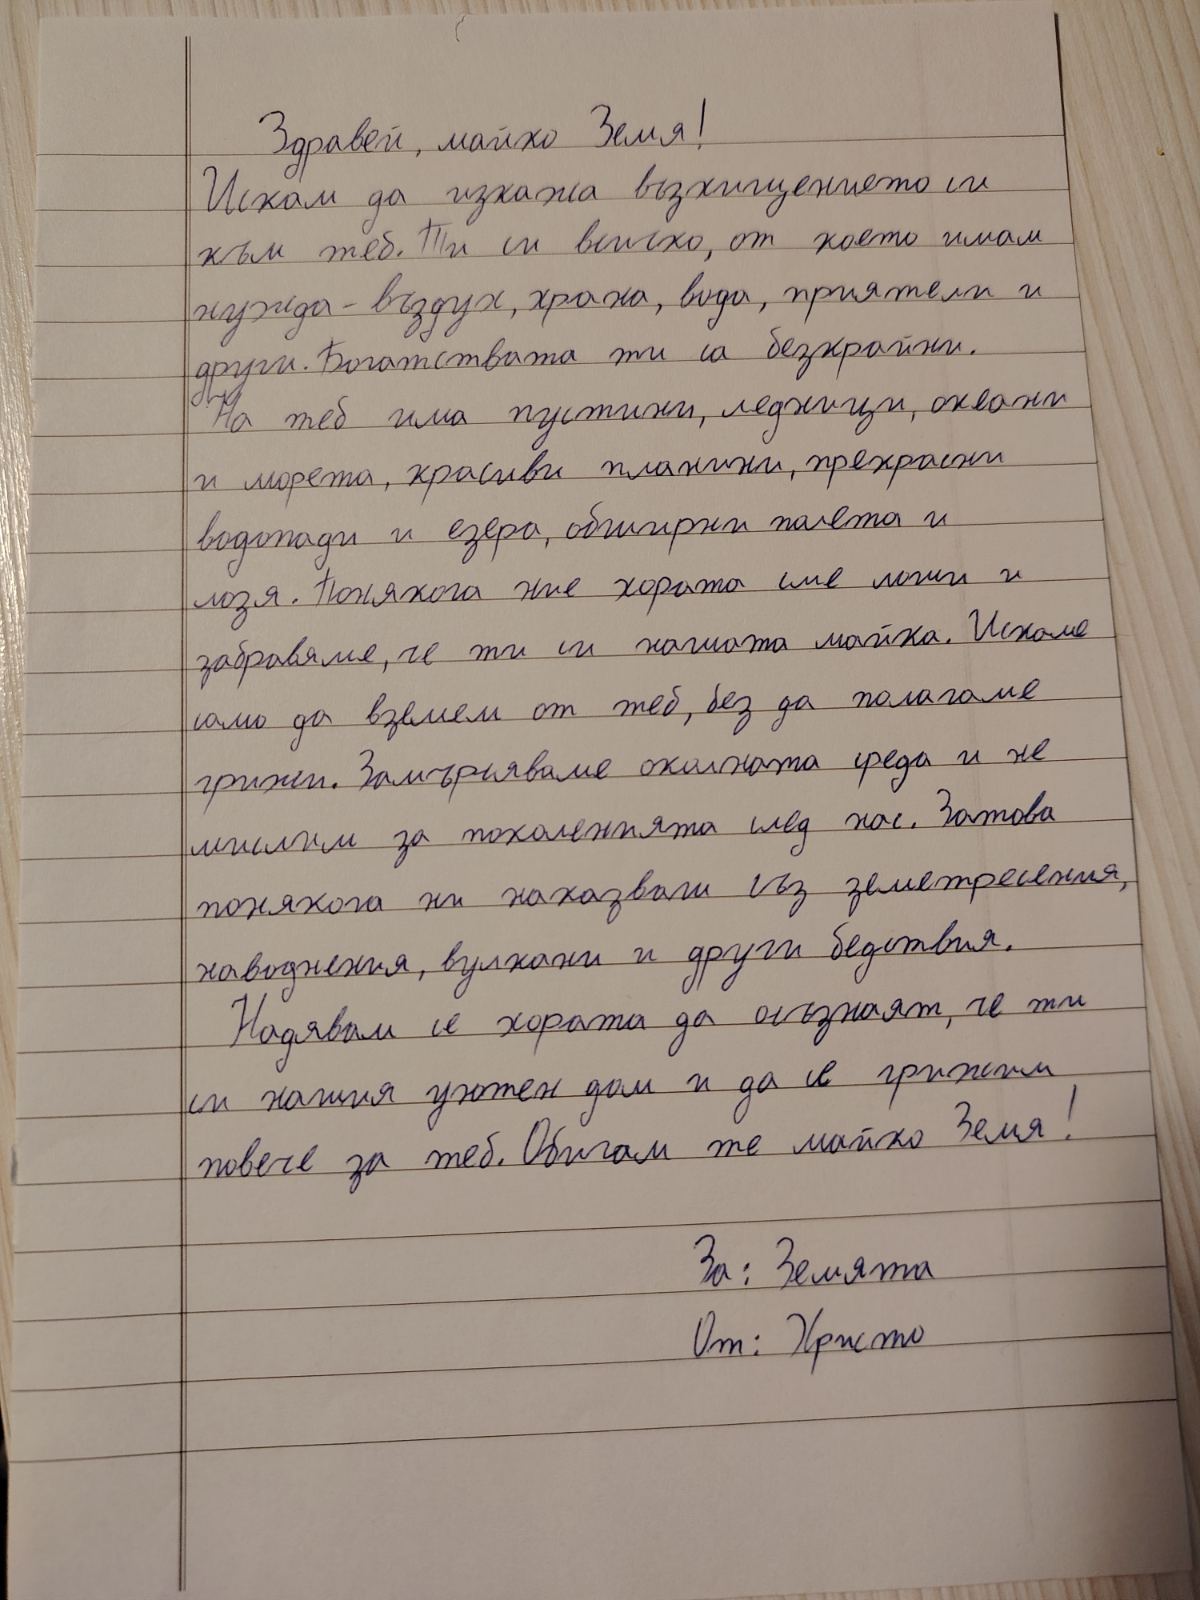 Здравей, майко Земя!
Искам да изкажа възхищението си
към теб. Ти си всичко, от което имам
нужда - въздух, храна, вода, приятели и
други. Богатствата ти са безкрайни.
На теб има пустини, ледници, океани
и морета, красиви планини, прекрасни
водопади и езера, обширни полета и
лозя. Понякога ние хората сме лоши и
забравяме, че ти си нашата майка. Искаме
само да вземем от теб, без да полагаме
грижи. Замърсяваме околната среда и не
мислим за поколенията след нас. Затова
понякога ни наказваш със земетресения,
наводнения, вулкани и други бедствия.
Надявам се хората да осъзнаят, че ти
си нашия уютен дом и да се грижим
повече за теб. Обичам те майко Земя!
За: Земята
От: Христо